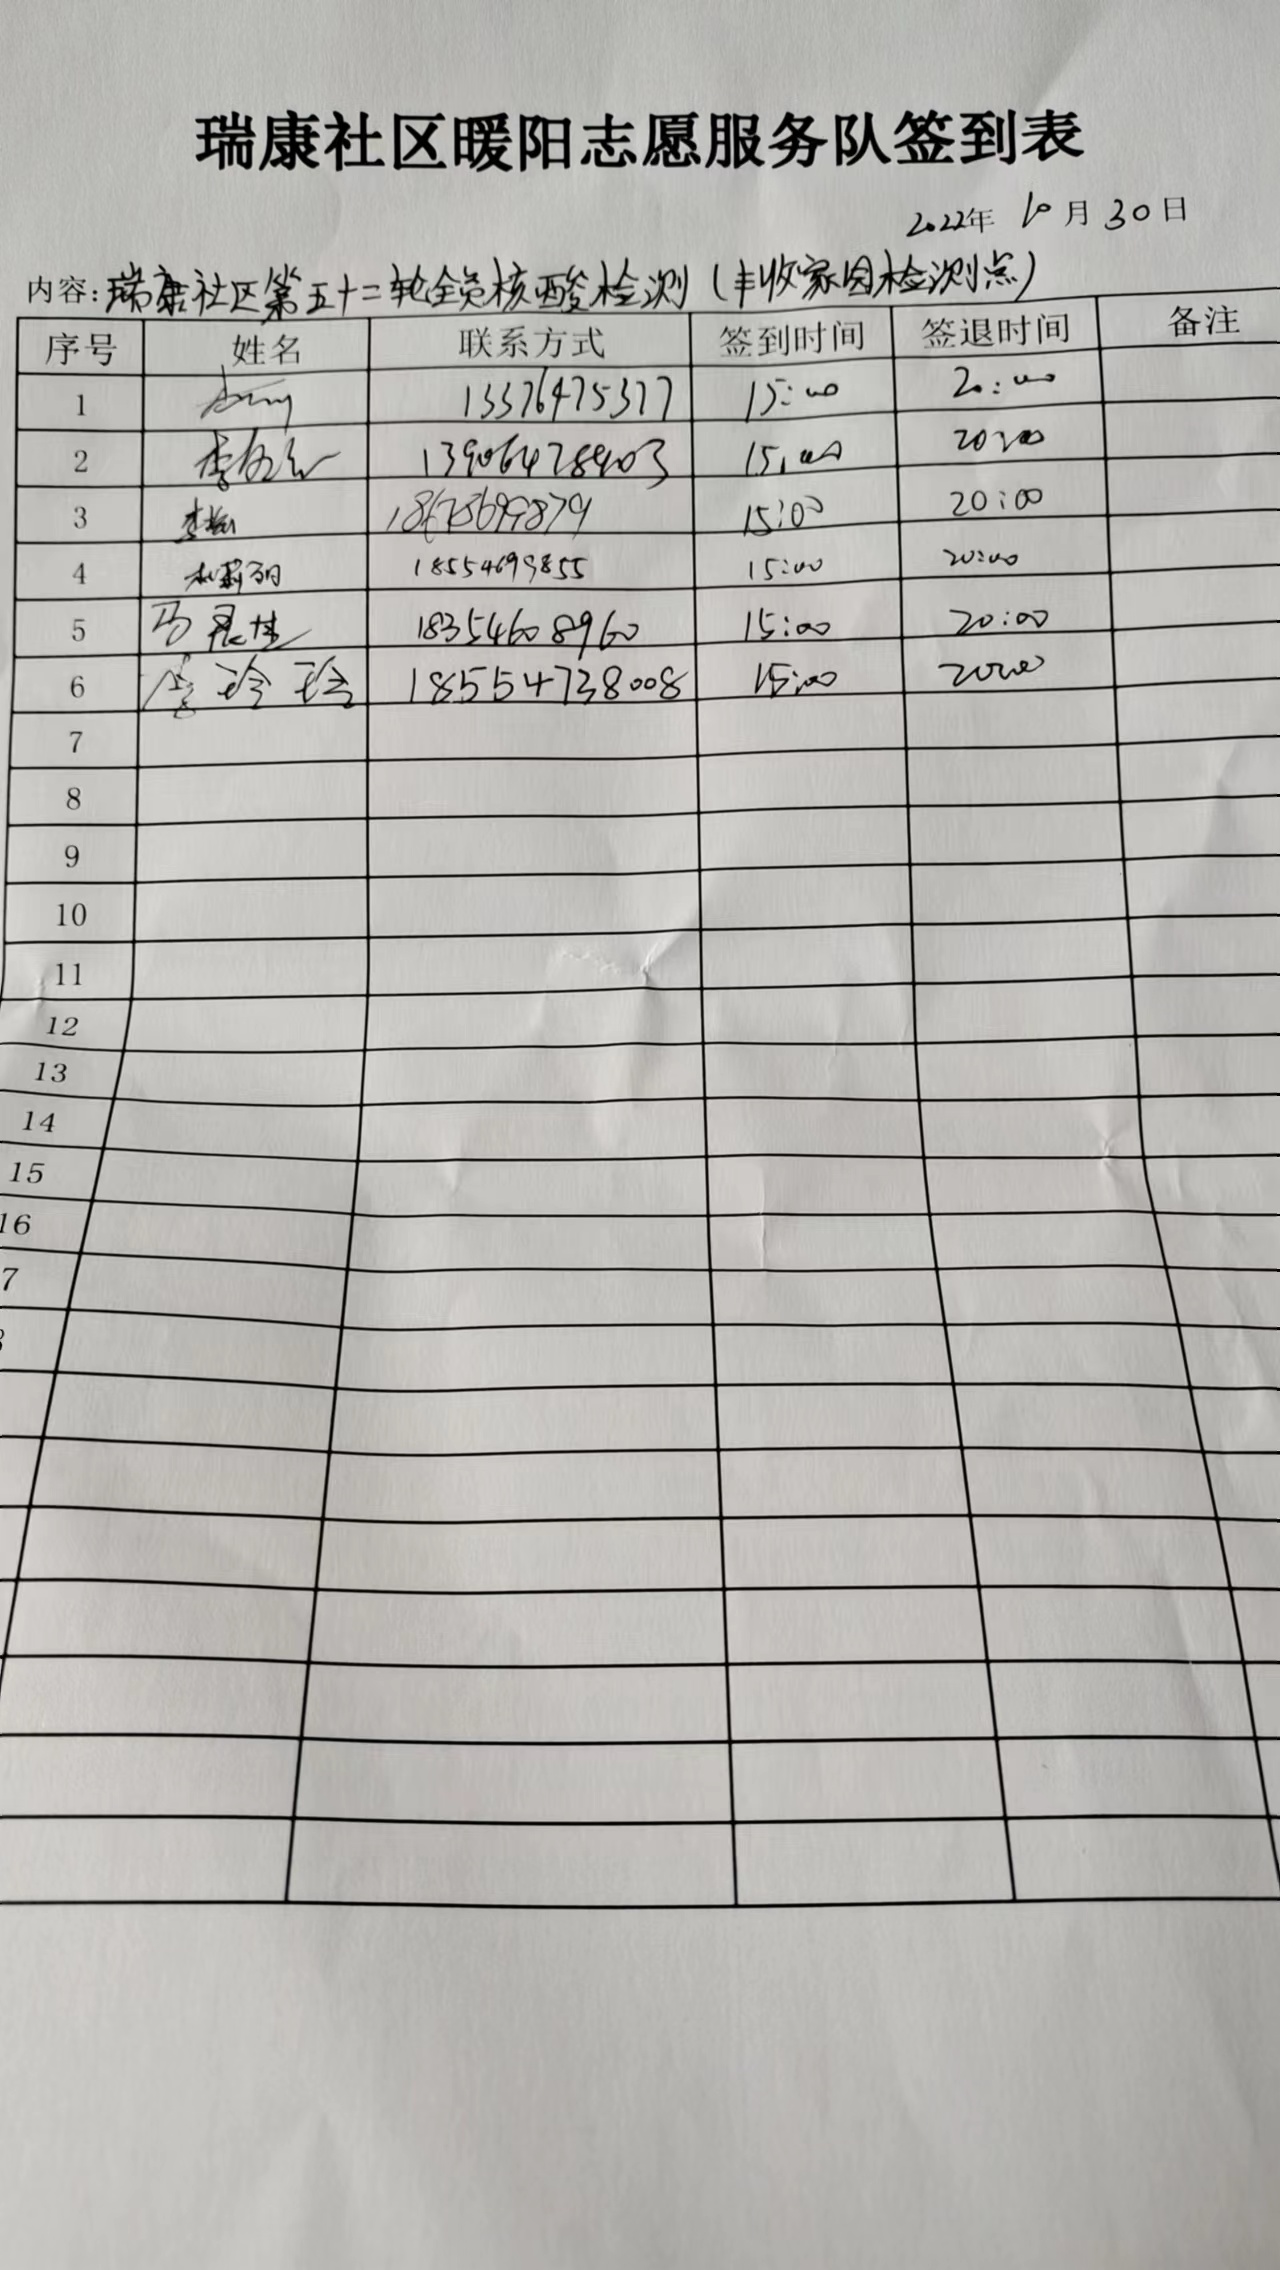 瑞康社区暖阳志愿服务队签到表
2022年 10月30日
内容:瑞康社区第五十二轮全员核酸检测(丰收家园检测点)
序号 姓名 联系方式 签到时间 签退时间 备注
1 13376475377 15:00 20:00
2 13906478903 15:00 20:00
3 李 18678699879 15:00 20:00
4 18554699855 15:00 20:00
5 马晨佳 18354608960 15:00 20:00
6 玲玲 18554738008 15:00 20:00
7
8
9
10
11
12
13
14
15
16
7